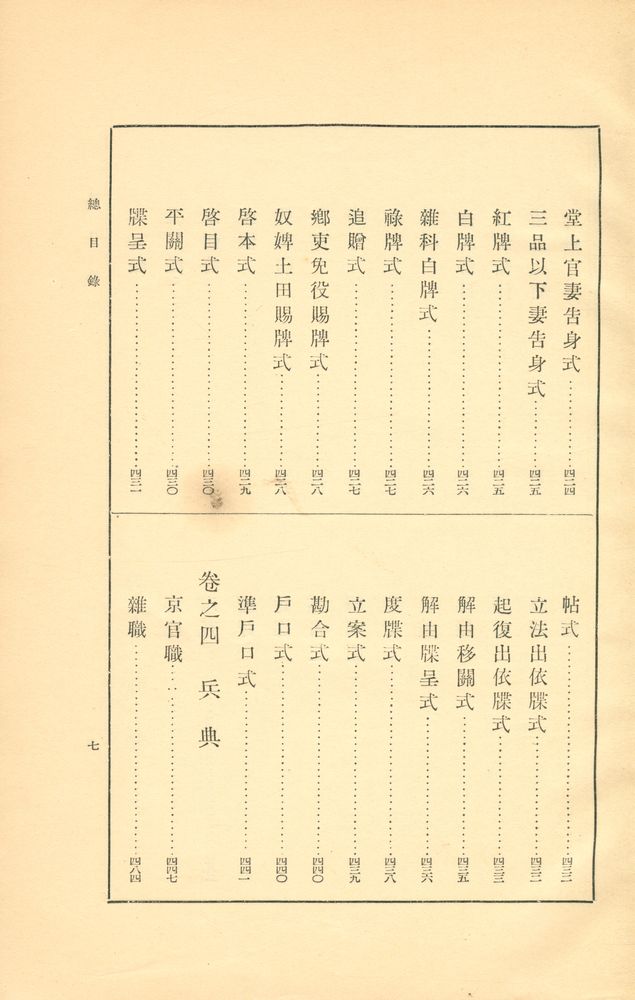 堂上官妻告身式……四二四
三品以下妻告身式……四二五
紅牌式……四二五
白牌式……四二六
雜科白牌式……四二六
祿牌式……四二七
追贈式……四二七
鄉吏免役賜牌式……四二八
奴婢土田賜牌式……四二八
啓本式……四二九
啓目式……四三〇
平關式……四三〇
牒呈式……四三一
帖式……四三二
立法出依牒式……四三二
起復出依牒式……四三三
解由移關式……四三五
解由牒呈式……四三六
度牒式……四三八
立案式……四三九
勘合式……四四〇
戶口式……四四〇
準戶口式……四四一
卷之四 兵典
京官職……四四七
雜職……四八四
總目錄
七